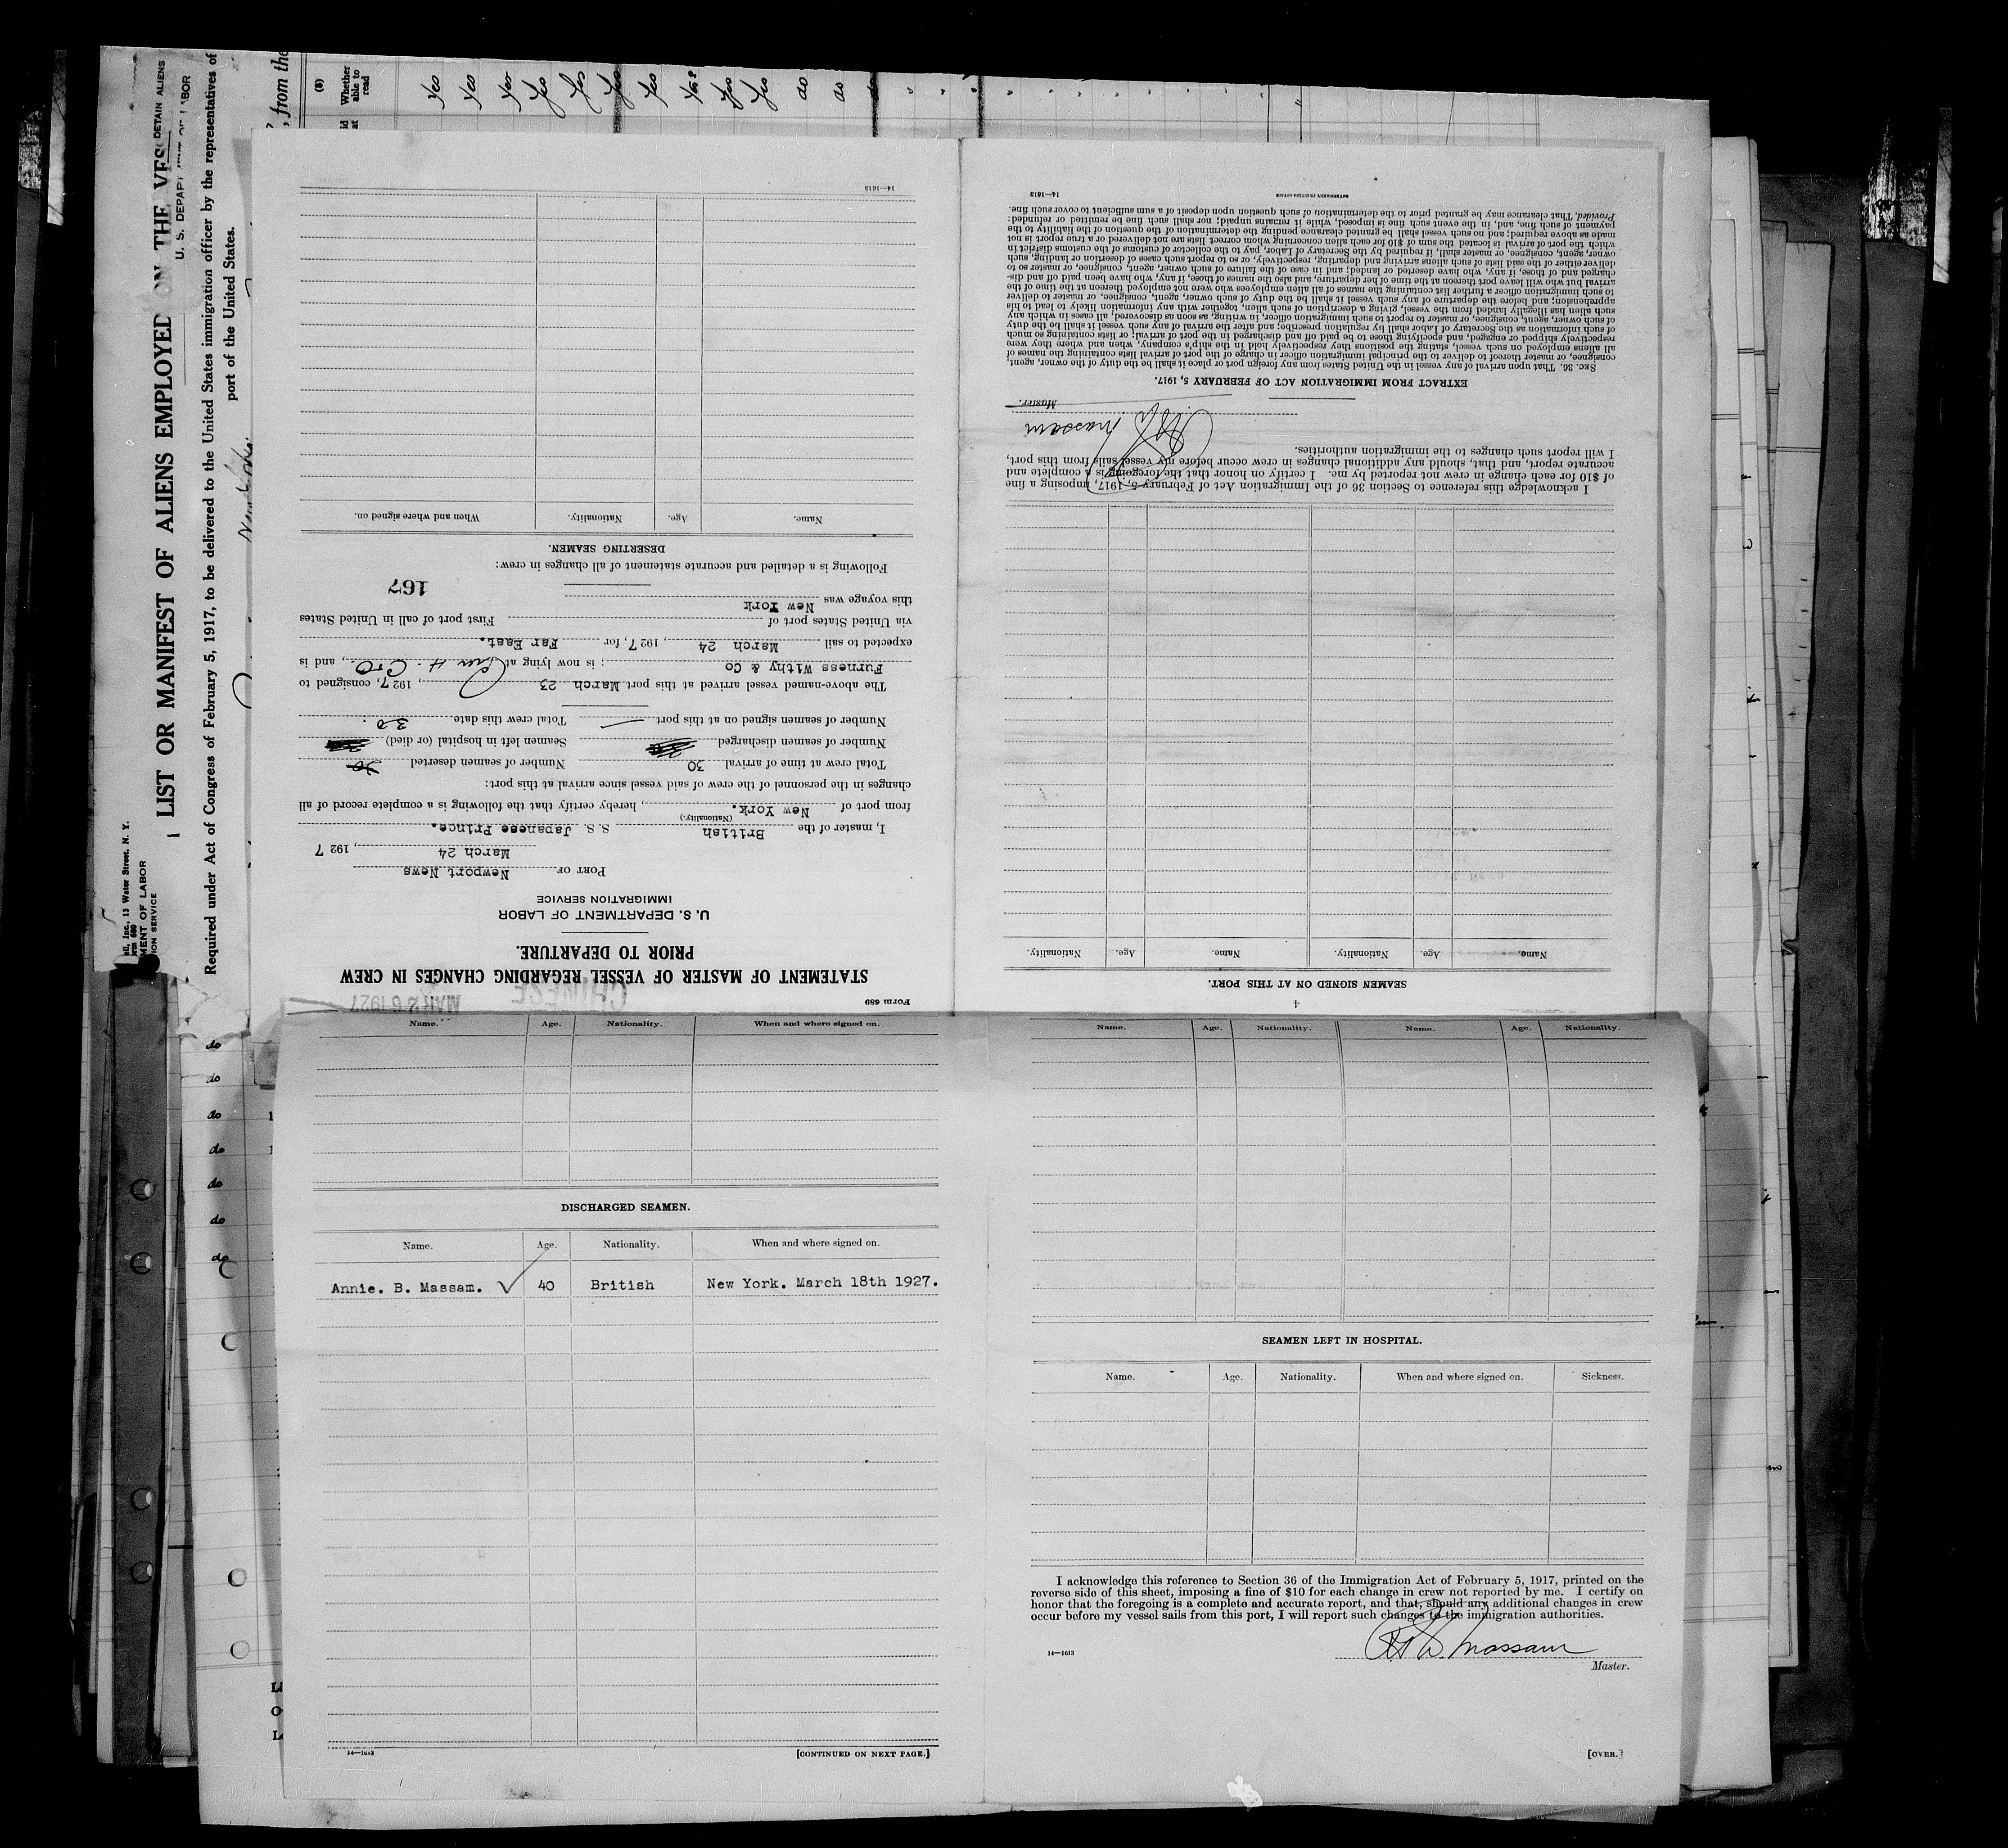 (8)
Whether able to read
Yes
Yes
Yes
Yes
Yes
Yes
Yes
Yes
Yes
Yes
do
do
, from the
LIST OR MANIFEST OF ALIENS EMPLOYED ON THE VES
DETAIN ALIENS
U. S. DEPAR
LABOR
Required under Act of Congress of February 5, 1917, to be delivered to the United States immigration officer by the representatives of
port of the United States.
ell, Inc., 13 Water Street, N. Y.
MENT OF LABOR
ION SERVICE
Form 689
CHINESE
MAR 26 1927
STATEMENT OF MASTER OF VESSEL REGARDING CHANGES IN CREW
PRIOR TO DEPARTURE.
U. S. DEPARTMENT OF LABOR
IMMIGRATION SERVICE
PORT OF Newport News
March 24, 1927
I, master of the British S. S. Japanese Prince.
(Nationality.)
from port of New York., hereby certify that the following is a complete record of all
changes in the personnel of the crew of said vessel since arrival at this port:
Total crew at time of arrival 30 Number of seamen deserted
Number of seamen discharged Seamen left in hospital (or died)
Number of seamen signed on at this port Total crew this date 30
The above-named vessel arrived at this port March 23, 1927, consigned to
Furness Withy & Co; is now lying at Pier 4 C&O, and is
expected to sail March 24, 1927, for Far East.
via United States port of First port of call in United States
this voyage was New York
167
Following is a detailed and accurate statement of all changes in crew:
DESERTING SEAMEN.
Name. Age. Nationality. When and where signed on.
14—1613
4
SEAMEN SIGNED ON AT THIS PORT.
Name. Age. Nationality. Name. Age. Nationality.
I acknowledge this reference to Section 36 of the Immigration Act of February 5, 1917, imposing a fine
of $10 for each change in crew not reported by me. I certify on honor that the foregoing is a complete and
accurate report, and that, should any additional changes in crew occur before my vessel sails from this port,
I will report such changes to the immigration authorities.
Massam
Master.
EXTRACT FROM IMMIGRATION ACT OF FEBRUARY 5, 1917.
SEC. 36. That upon arrival of any vessel in the United States from any foreign port or place it shall be the duty of the owner, agent,
consignee, or master thereof to deliver to the principal immigration officer in charge of the port of arrival lists containing the names of
all aliens employed on such vessel, stating the positions they respectively hold in the ship's company, when and where they were
respectively shipped or engaged, and specifying those to be paid off and discharged in the port of arrival; or lists containing so much
of such information as the Secretary of Labor shall by regulation prescribe; and after the arrival of any such vessel it shall be the duty
of such owner, agent, consignee, or master to report to such immigration officer, in writing, as soon as discovered, all cases in which any
such alien has illegally landed from the vessel, giving a description of such alien, together with any information likely to lead to his
apprehension; and before the departure of any such vessel it shall be the duty of such owner, agent, consignee, or master to deliver
to such immigration officer a further list containing the names of all alien employees who were not employed thereon at the time of the
arrival but who will leave port thereon at the time of her departure, and also the names of those, if any, who have been paid off and dis-
charged and of those, if any, who have deserted or landed; and in case of the failure of such owner, agent, consignee, or master so to
deliver either of the said lists of such aliens arriving and departing, respectively, or so to report such cases of desertion or landing, such
owner, agent, consignee, or master shall, if required by the Secretary of Labor, pay to the collector of customs of the customs district in
which the port of arrival is located the sum of $10 for each alien concerning whom correct lists are not delivered or a true report is not
made as above required; and no such vessel shall be granted clearance pending the determination of the question of the liability to the
payment of such fine, and, in the event such fine is imposed, while it remains unpaid; nor shall such fine be remitted or refunded:
Provided, That clearance may be granted prior to the determination of such question upon deposit of a sum sufficient to cover such fine.
14—1613
GOVERNMENT PRINTING OFFICE
do
do
do
do
do
do
do
Name. Age. Nationality. When and where signed on.
DISCHARGED SEAMEN.
Name. Age. Nationality. When and where signed on.
Annie. B. Massam. 40 British New York. March 18th 1927.
14—1613
[CONTINUED ON NEXT PAGE.]
Name. Age. Nationality. Name. Age. Nationality.
SEAMEN LEFT IN HOSPITAL.
Name. Age. Nationality. When and where signed on. Sickness.
I acknowledge this reference to Section 36 of the Immigration Act of February 5, 1917, printed on the
reverse side of this sheet, imposing a fine of $10 for each change in crew not reported by me. I certify on
honor that the foregoing is a complete and accurate report, and that, should any additional changes in crew
occur before my vessel sails from this port, I will report such changes to the immigration authorities.
Massam
14—1613
Master.
[OVER.]